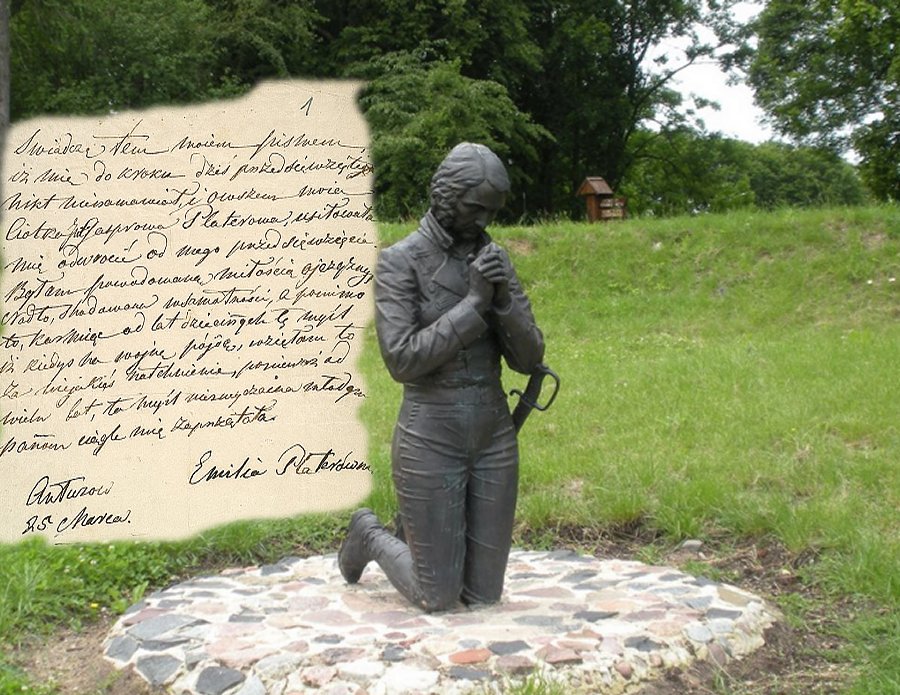 1
Świadczę tem moiem pismem,
iż mię do kroku dziś przedsięwziętego
nikt nienamawiał, i owszem moia
Ciotka Gasprowa Platerowa, usiłowała
mię odwrócić od mego przedsięwzięcia.
Byłam powodowana miłością ojczyzny,
Nadto, składowana w samotności, a pomimo
to, karmiąc od lat dziecinnych tę myśl
iż kiedyś na wojnę pójdę, wzięłam to
za niejakiś natchnienie, ponieważ od
wielu lat, ta myśl niezwyczaina młodym
panom ciągle mię zaprzątała.
Emilia Platerówna
Antuzow
25 Marca.